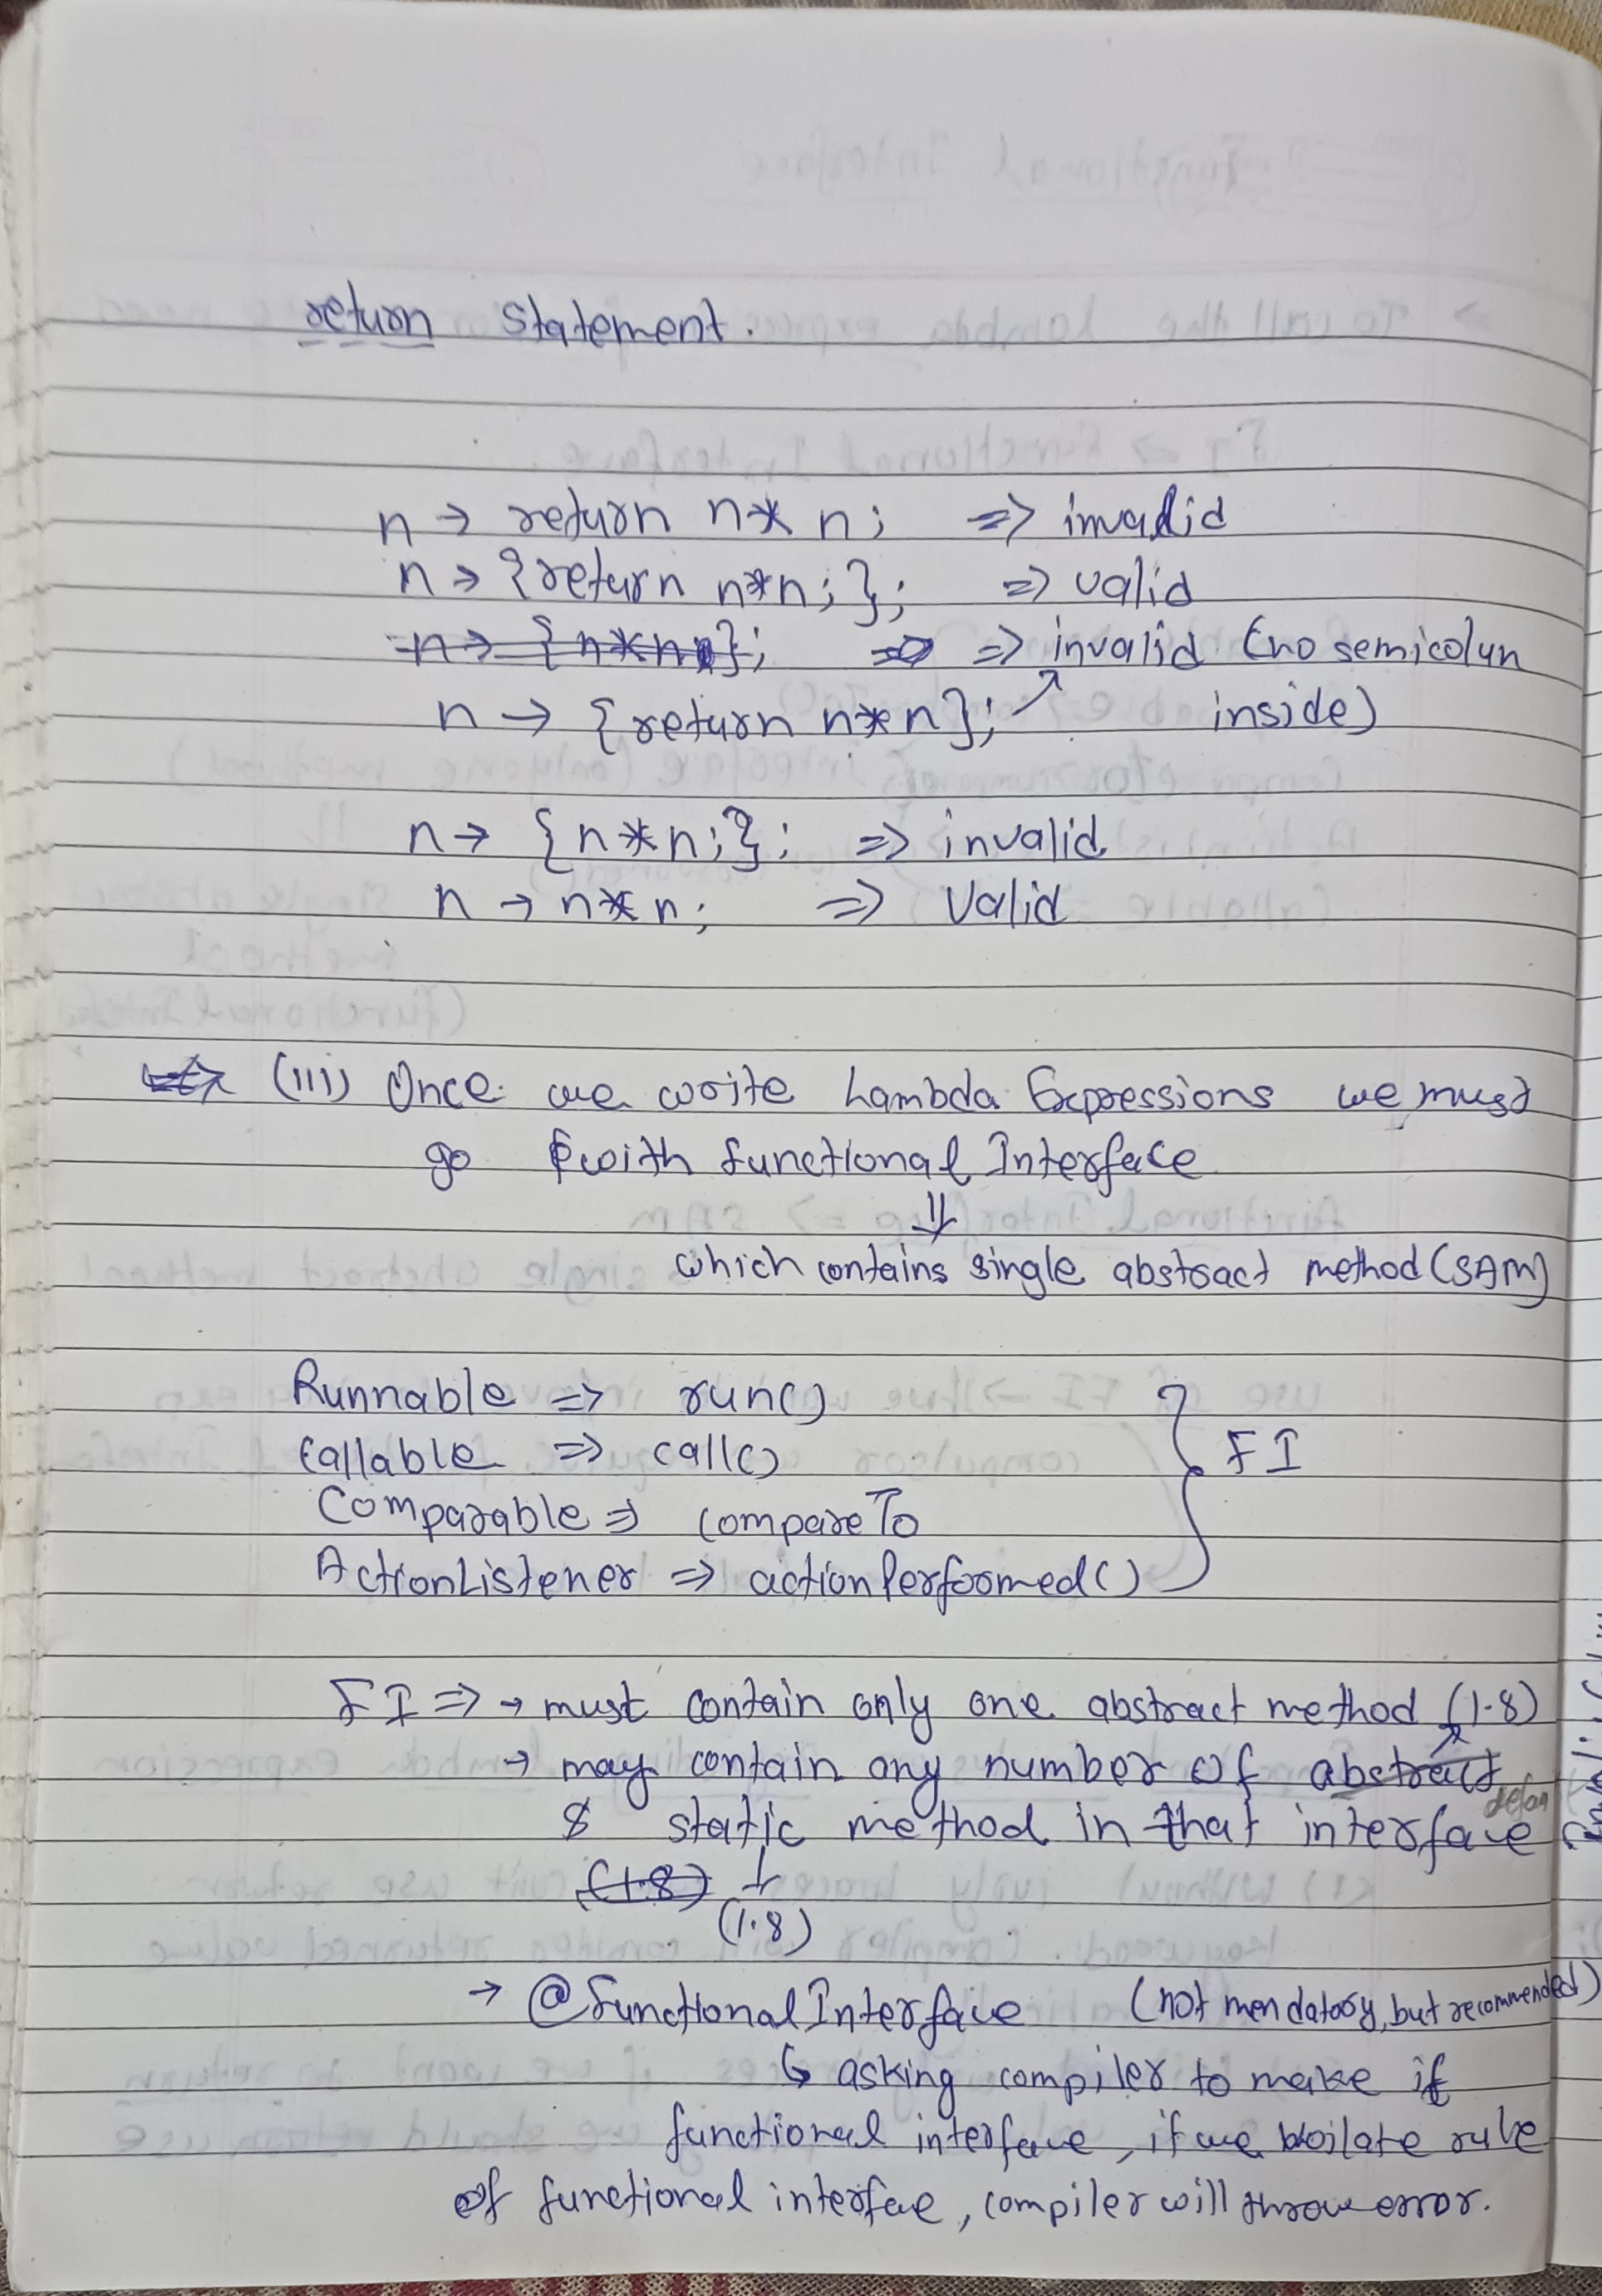 return statement.
n → return n * n; => invalid
n → {return n*n;}; => valid
n → {n*n}; => invalid (no semicolun
n → {return n*n}; inside)
n → {n*n;}; => invalid
n → n*n; => Valid
(iii) Once we write Lambda Expressions we must
go with functional Interface
⇓
which contains single abstract method (SAM)
Runnable => run()
Callable => call()
Comparable => compareTo
ActionListener => actionPerformed()
FI
FI => → must contain only one abstract method (1.8)
→ may contain any number of abstract
& static method in that interface
(1.8) ↓
(1.8)
→ @functionalInterface (not mendatory, but recommended)
↳ asking compiler to make it
functional interface, if we voilate rule
of functional interfae, compiler will throw error.